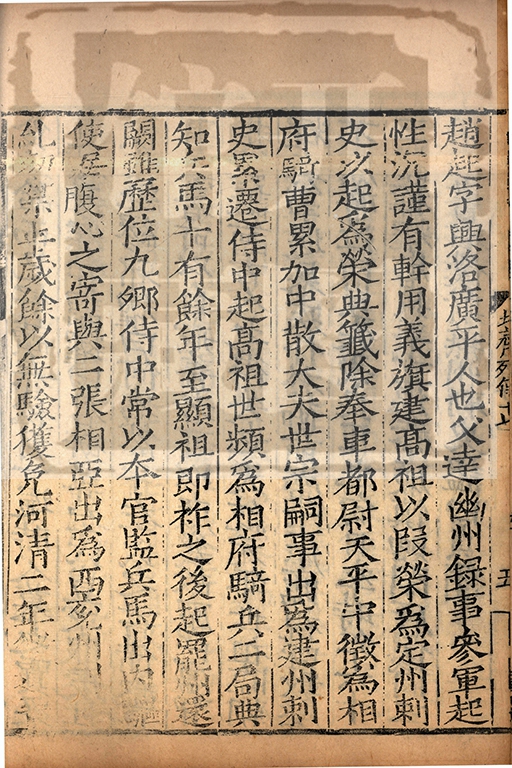 趙起字興洛廣平人也父達幽州録事參軍起
性沉謹有幹用義旗建高祖以段榮爲定州刺
史以起爲榮典籤除奉車都尉天平中徵爲相
府騎曹累加中散大夫世宗嗣事出爲建州刺
史累遷侍中起高祖世頻爲相府騎兵二局典
知兵馬十有餘年至顯祖即祚之後起罷州還
闕雖歷位九卿侍中常以本官監兵馬出内驅
使居腹心之寄與二張相亞出爲西兖州
糺劾禁止歲餘以無驗獲免河清二年
北齊列傳十七
五